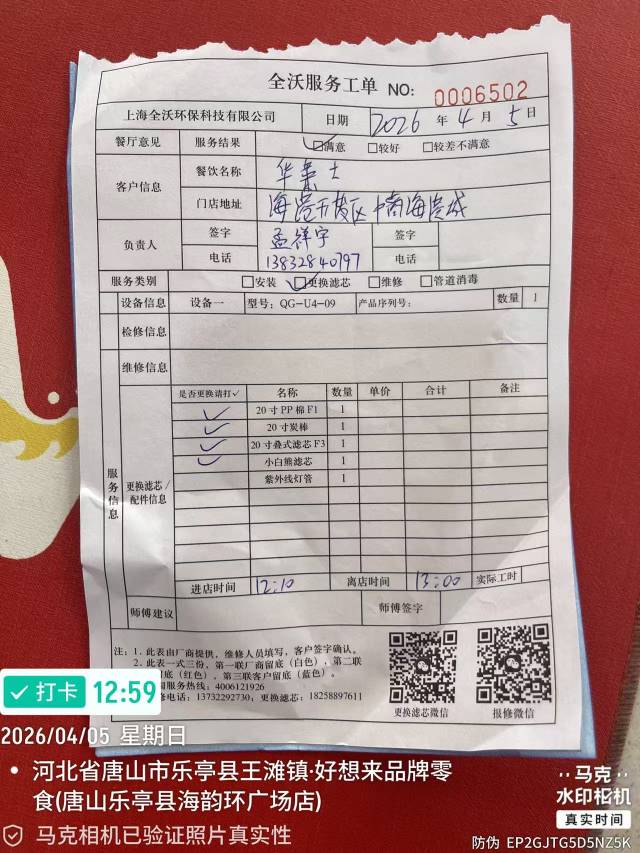 全沃服务工单 NO: 0006502
上海全沃环保科技有限公司 日期 2026 年 4 月 5 日
餐厅意见 服务结果 ☑满意 □较好 □较差不满意
客户信息 餐饮名称 华莱士
门店地址 海港开发区中南海港城
负责人 签字 孟祥宇 签字
电话 13832840797 电话
服务类别 □安装 ☑更换滤芯 □维修 □管道消毒
设备信息 设备一 型号: QG-U4-09 产品序列号: 数量 1
检修信息
维修信息
服务信息
更换滤芯/配件信息
是否更换请打√ 名称 数量 单价 合计 备注
✓ 20寸PP棉F1 1
✓ 20寸炭棒 1
✓ 20寸叠式滤芯F3 1
✓ 小白熊滤芯 1
紫外线灯管 1
进店时间 12:10 离店时间 13:00 实际工时
师傅建议 师傅签字
注: 1. 此表由厂商提供, 维修人员填写, 客户签字确认。
2. 此表一式三份, 第一联厂商留底(白色), 第二联
留底(红色), 第三联客户留底(蓝色)。
服务热线: 4006121926
电话: 13732292730, 更换滤芯: 18258897611
更换滤芯微信 报修微信
打卡 12:59
2026/04/05 星期日
河北省唐山市乐亭县王滩镇·好想来品牌零
食(唐山乐亭县海韵环广场店)
马克相机已验证照片真实性
马克
水印相机
真实时间
防伪 EP2GJTG5D5NZ5K